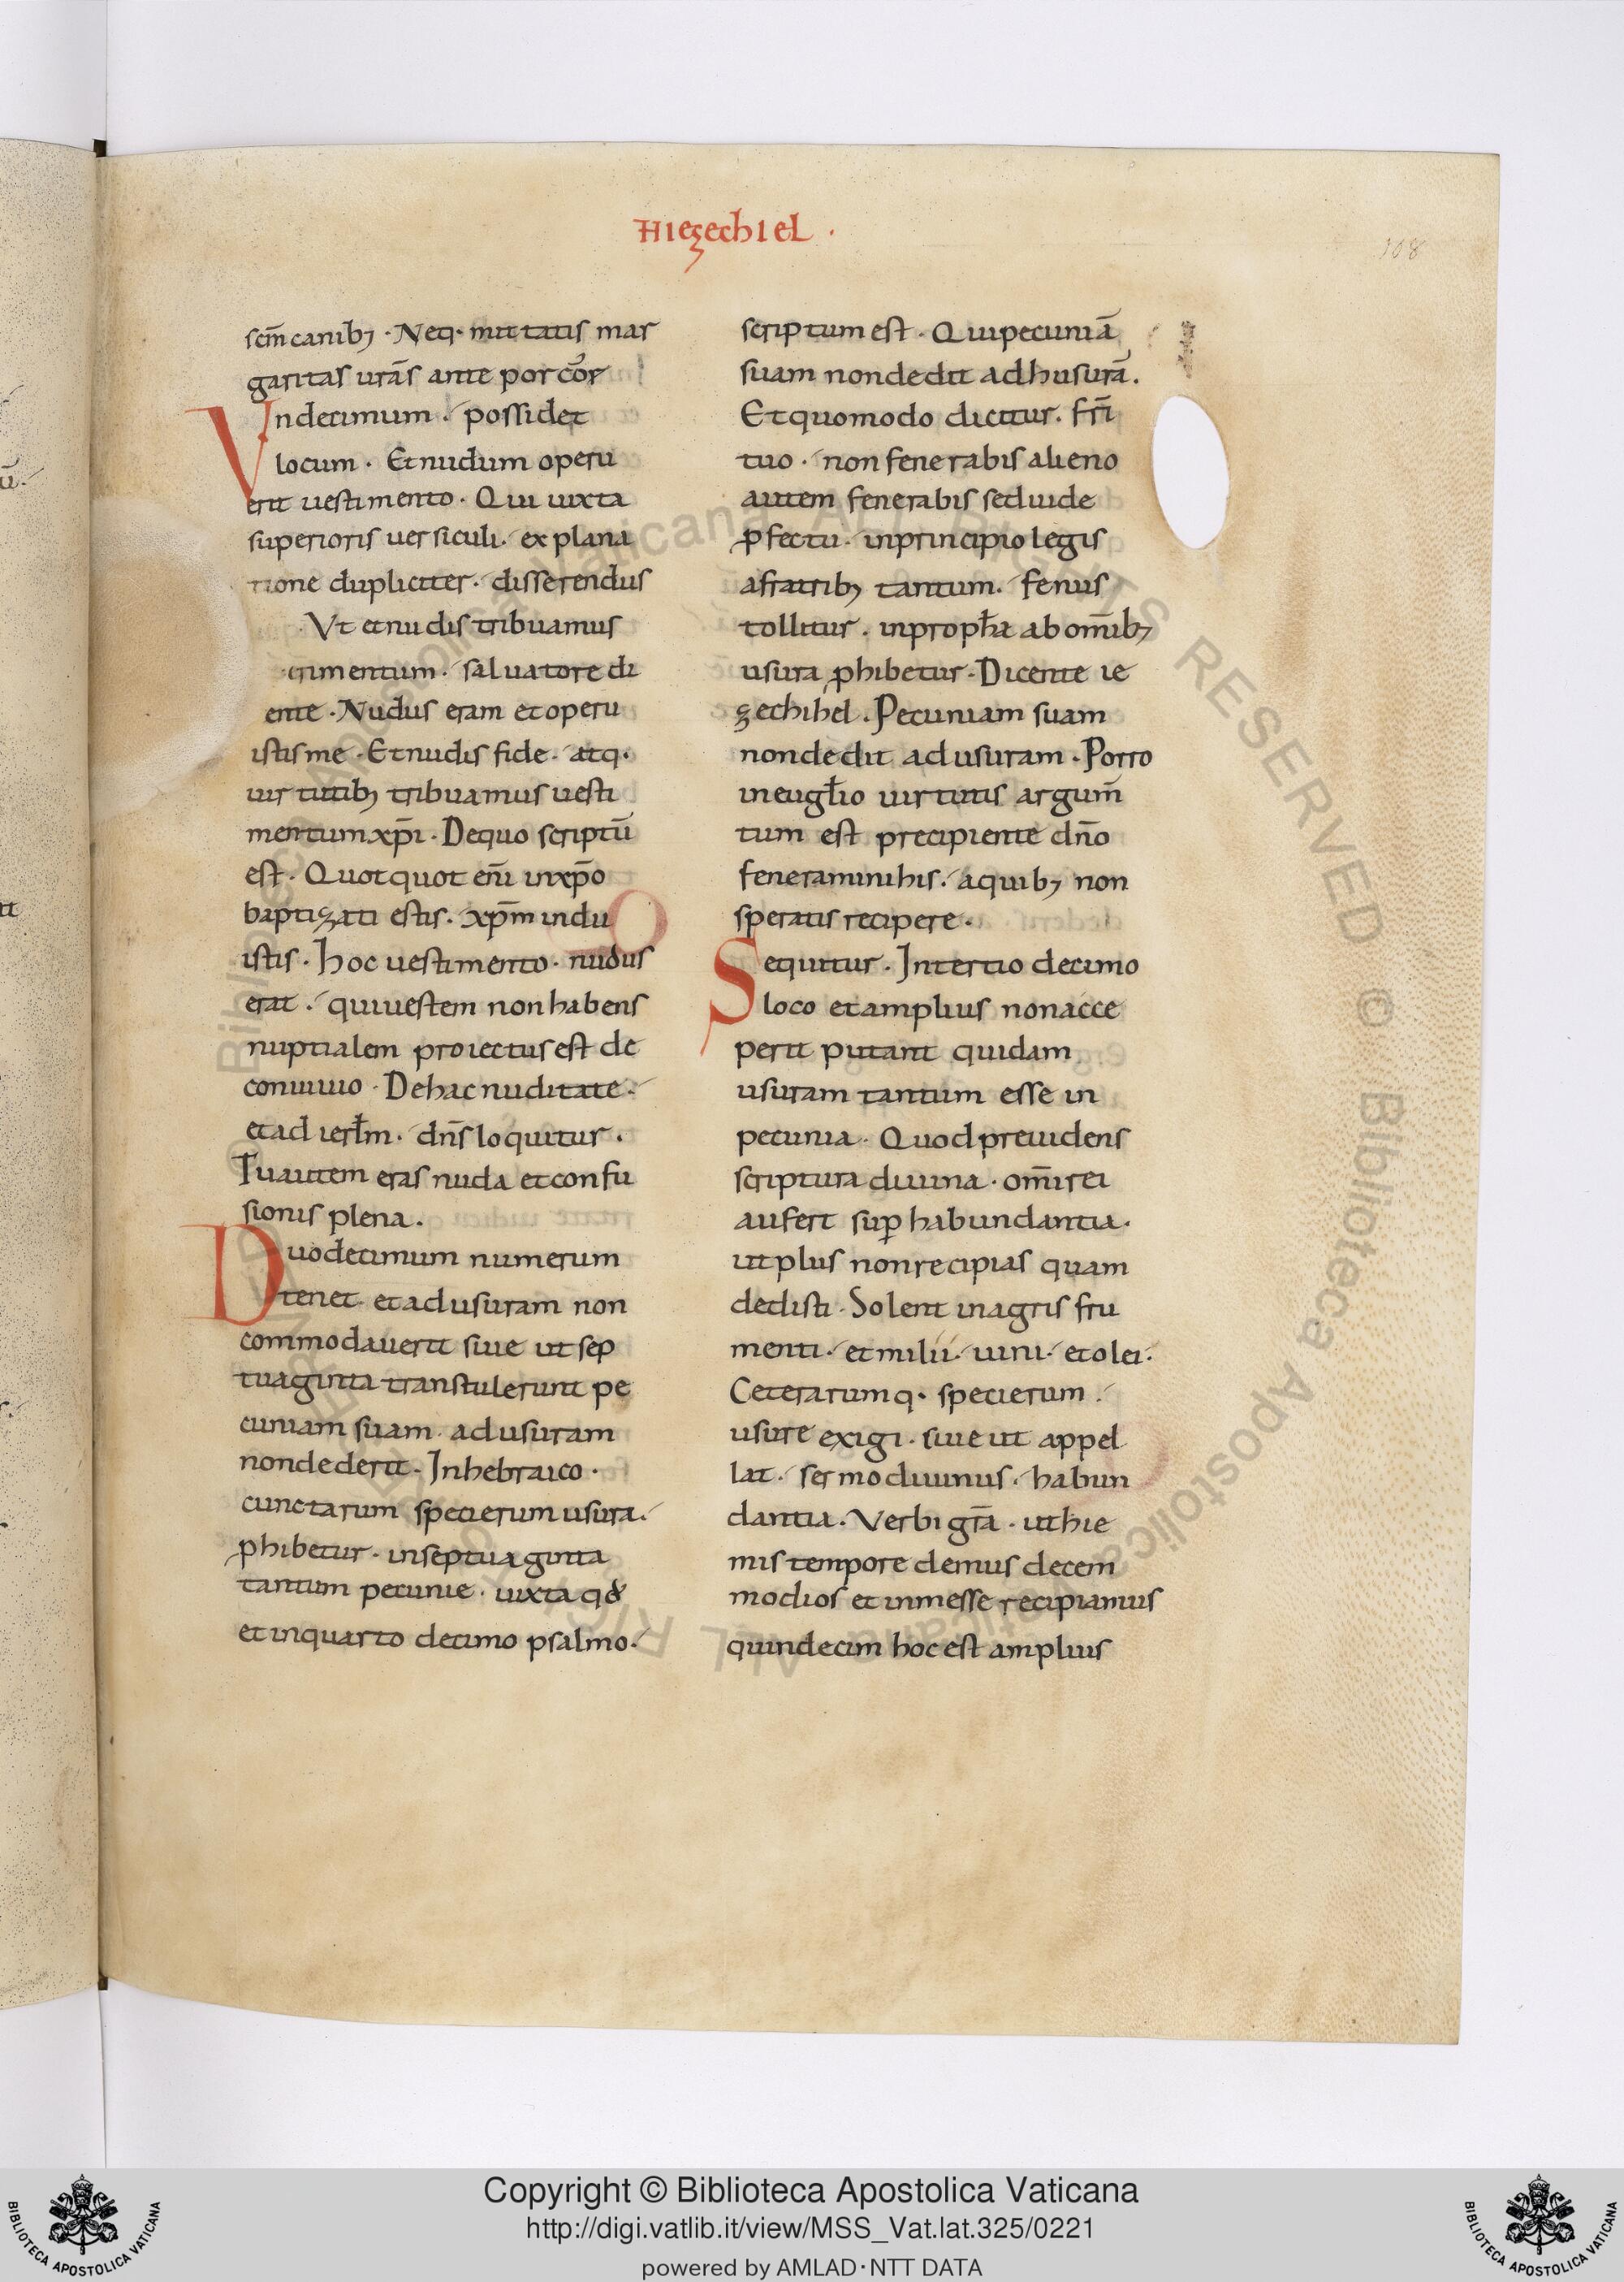 Hiezechiel .
108
scm̄ canibꝫ · Neq· mittatis mar
garitas urās ante porcor̄
Vndecimum · possidet
locum · Et nudum operu
erit uestimento · Qui iuxta
superioris uersiculi · explana
tione dupliciter · disserendus
Vt et nudis tribuamus
timentum · saluatore di
ente · Nudus eram et operu
istis me · Et nudis fide · atq·
uirtutibꝫ tribuamus uesti
mentum xp̄i · De quo scriptū
est · Quotquot eni̅ in xp̄o
baptizati estis · xp̄m indu
istis · hoc uestimento · nudus
erat · qui uestem non habens
nuptialem proiectus est de
conuiuio · De hac nuditate ·
et ad ierl̄m · dn̄s loquitur ·
Tu autem eras nuda et confu
sionis plena .
Duodecimum numerum
tenet · et ad usuram non
commodauerit siue ut sep
tuaginta transtulerunt pe
cuniam suam · ad usuram
non dederit · In hebraico ·
cunctarum specierum usura ·
ꝓhibetur · in septuaginta
tantum pecunie · iuxta qđ
et in quarto decimo psalmo ·
scriptum est · Qui pecuniā
suam non dedit ad husurā .
Et quomodo dicitur · fr̄i
tuo · non fenerabis alieno
autem fenerabis sed uide
ꝓfectu · in principio legis
a fratribꝫ tantum · fenus
tollitur · in propħa ab om̄ibꝫ
usura ꝓhibetur · Dicente ie
zechihel . Pecuniam suam
non dedit ad usuram · Porro
in eugłio uirtutis argum̄
tum est precipiente dn̄o
feneramini his · a quibꝫ non
speratis recipere ·
Sequitur · In tertio decimo
loco et amplius non acce
perit putant quidam
usuram tantum esse in
pecunia · Quod preuidens
scriptura diuina · om̄i rei
aufert suꝑ habundantia ·
ut plus non recipias quam
dedisti · Solent in agris fru
menti · et milii · uini · et olei ·
Ceterarumq· specierum ·
usure exigi · siue ut appel
lat · sermo diuinus · habun
dantia · Verbi gr̄a · ut hie
mis tempore demus decem
modios et in messe recipiamus
quindecim hoc est amplius
Copyright © Biblioteca Apostolica Vaticana
http://digi.vatlib.it/view/MSS_Vat.lat.325/0221
powered by AMLAD·NTT DATA